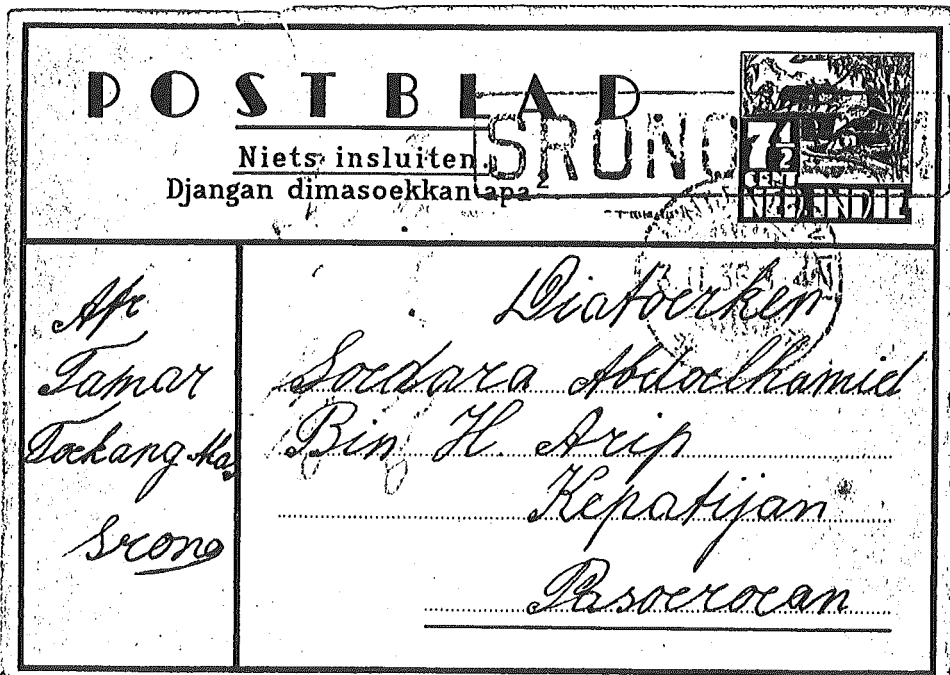 POSTBLAD
Niets insluiten.
Djangan dimasoekkan apa²
SRONO
7½
CENT
NED. INDIE
Afz
Tamar
Toekang Mas
Srono
Diatoerken
Soedara Abdoelhamid
Bin H. Arip
Kepatijan
Pasoeroean